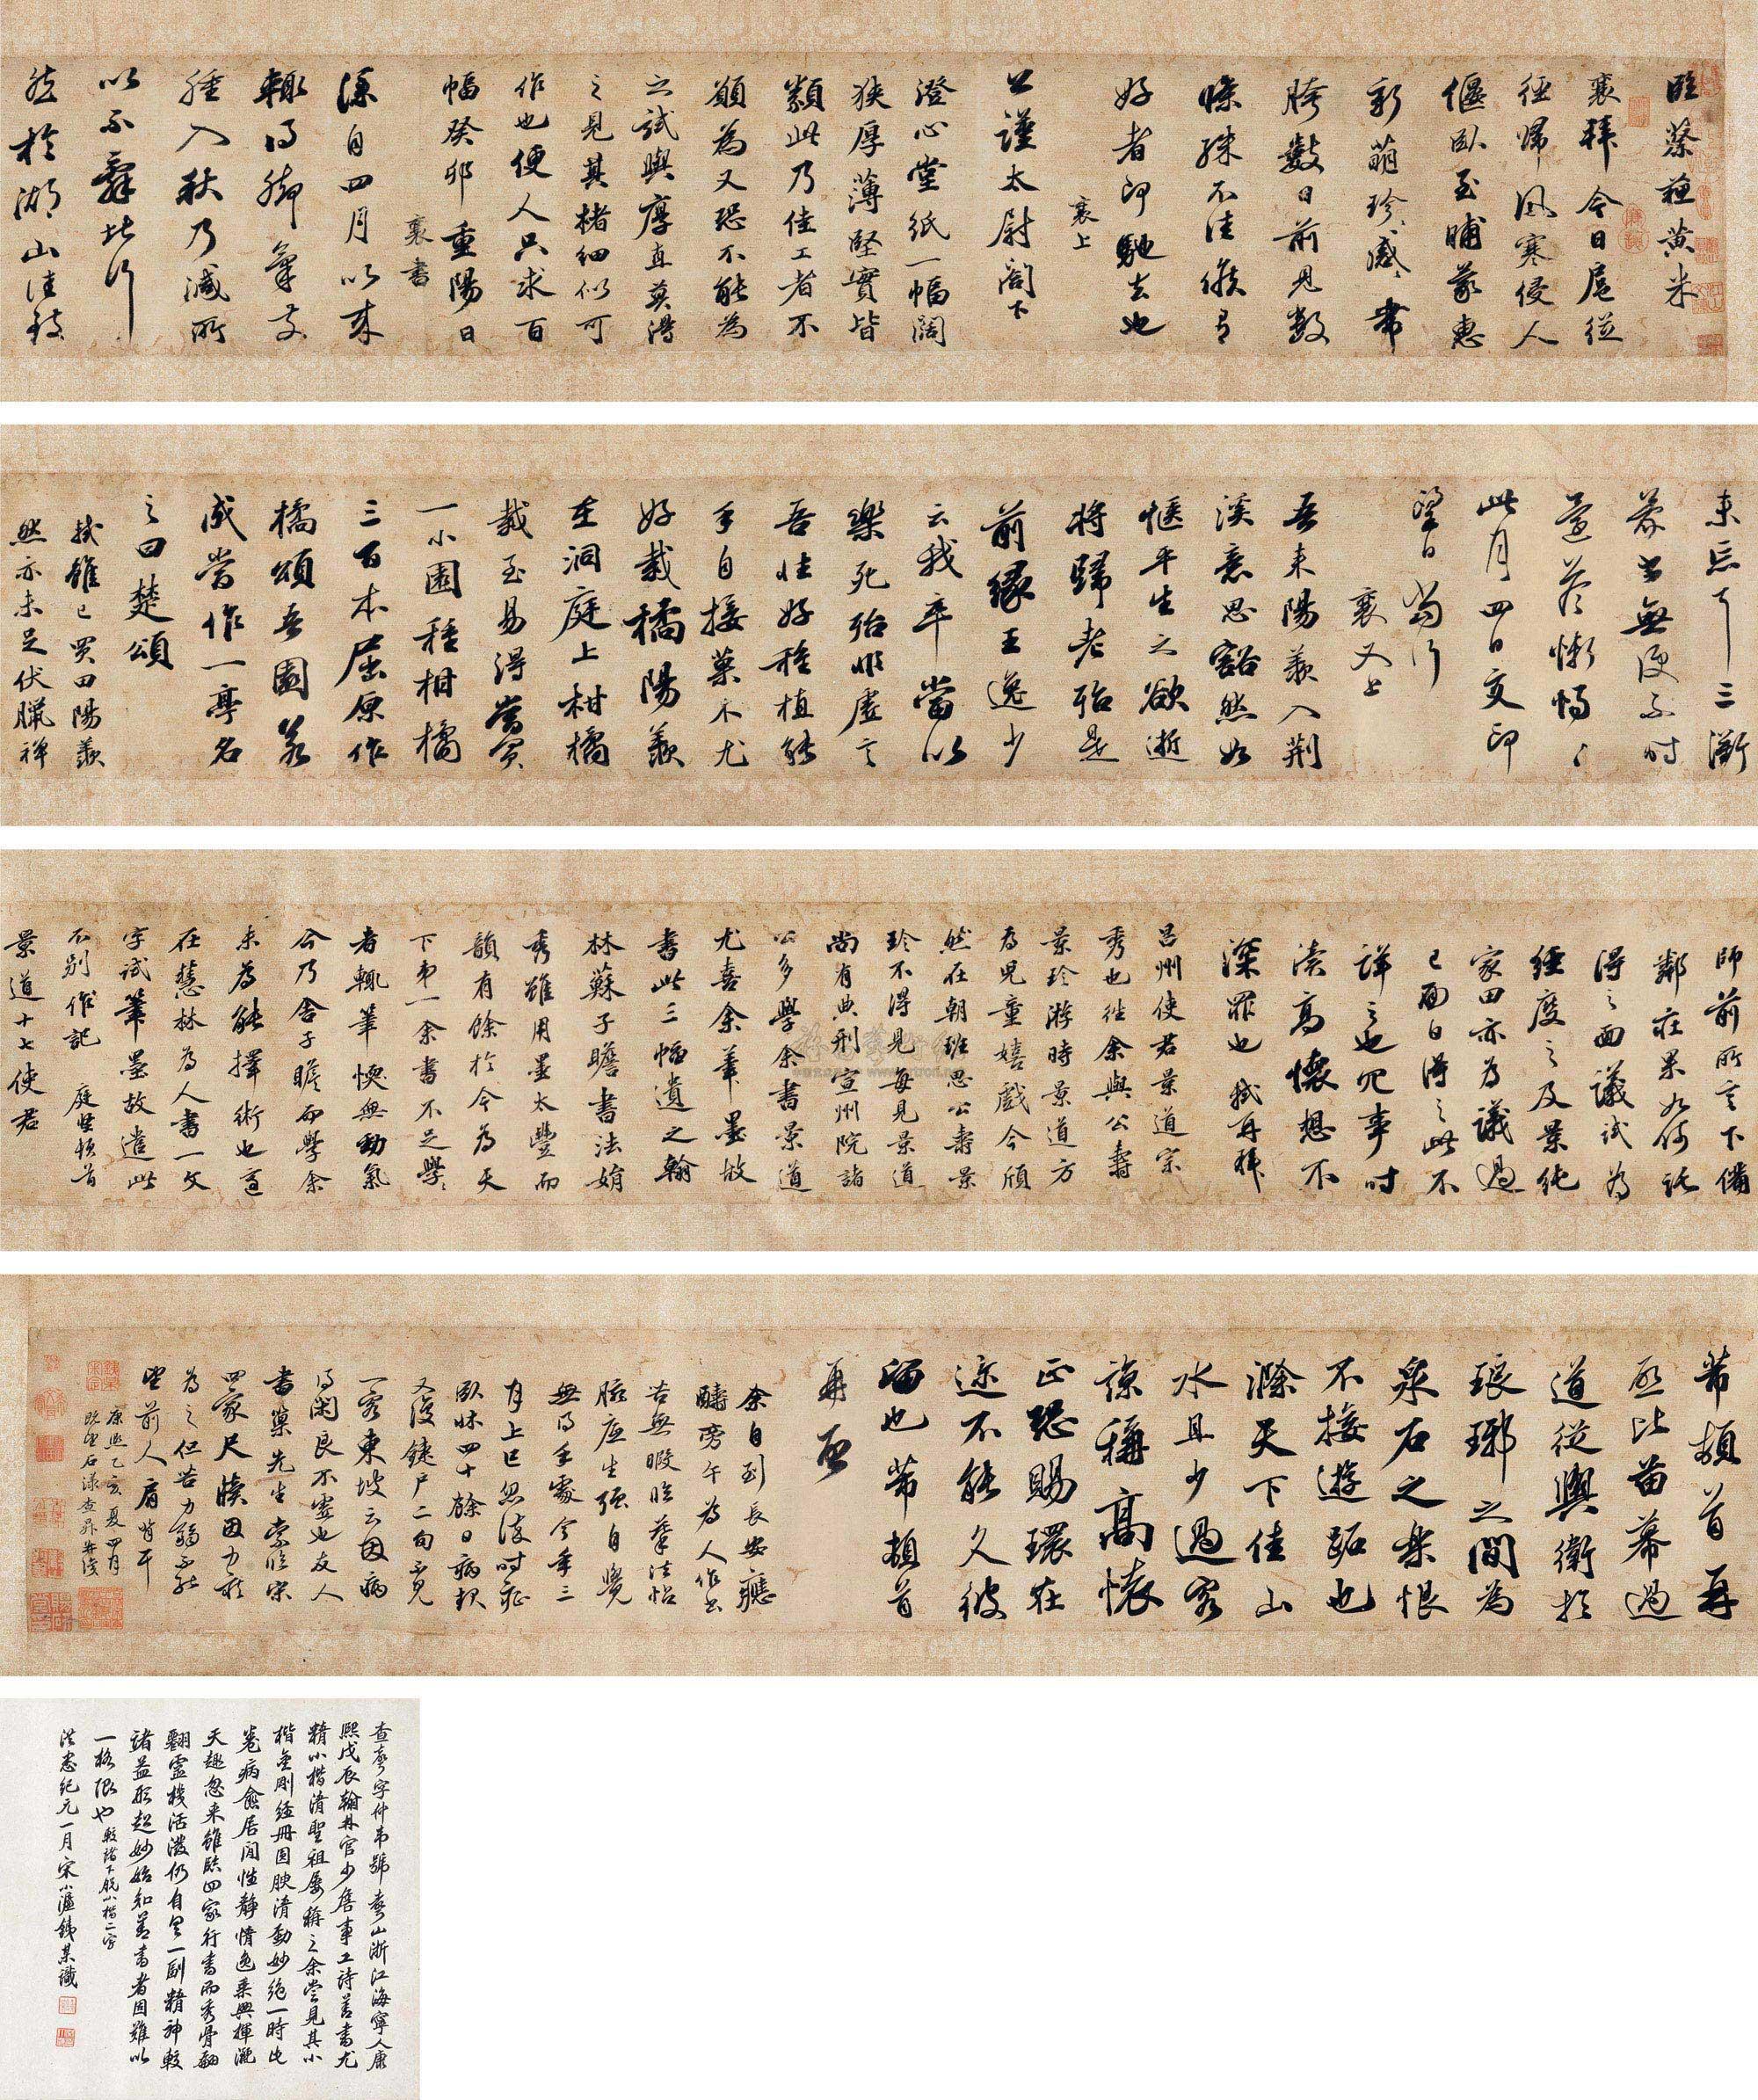 臨蔡蘇黄米
襄拜今日扈從
徑歸風寒侵人
偃臥至晡蒙惠
新萌珍感珍感帶
胯數日前見數
條殊不佳候有
好者即馳去也
襄上
公謹太尉閤下
澄心堂紙一幅闊
狹厚薄堅實皆
類此乃佳工者不
願為又恐不能為
之試與厚直莫得
之見其楮細似可
作也便人只求百
幅癸卯重陽日
襄書
漆自四月以來
輒得腳氣發
腫入秋乃減所
以不辭北行
然於湖山佳致
未忘耳三衢
蒙書無便不時
還答慚惕慚惕
此月四日交印
望日當行
襄又上
吾來陽羨入荆
溪意思豁然如
愜平生之欲逝
將歸老殆是
前緣王逸少
云我卒當以
樂死殆非虛言
吾性好種植能
手自接菓木尤
好栽橘陽羨
在洞庭上柑橘
栽至易得當買
一小園種柑橘
三百本屈原作
橘頌吾園若
成當作一亭名
之曰楚頌
軾雖已買田陽羨
然亦未足伏臘禪
師前所言下備
鄰莊果如何託
得之面議試為
經度之及景純
家田亦為議過
已面白得之此不
詳云也冗事時
瀆高懷想不
深罪也軾再拜
呂州使君景道宗
秀也往余與公壽
景珍游時景道方
為兒童嬉戲今頎
然在朝班思公壽景
珍不得見每見景道
尚有典刑宣州院諸
公多學余書景道
尤喜余筆墨故
書此三幅遺之翰
林蘇子瞻書法娟
秀雖用墨太豐而
韻有餘於今為天
下第一余書不足學學
者輒筆愞無勁氣
今乃舍子瞻而學余
未為能擇術也適
在慧林為人書一文
字試筆墨故遣此
不別作記庭堅頓首
景道十七使君
芾頓首再
啓比苗幕過
道從輿衛於
琅琊之間為
泉石之樂恨
不接遊蹤也
滁天下佳山
水且少過客
諒稱高懷
正恐賜環在
迩不能久彼
留也芾頓首
再啓
余自到長安應
酬旁午為人作書
苦無暇臨摹法帖
腕底生强自覺
無得手處今年三
月上巳忽染時症
臥牀四十餘日病起
又復鍵户二旬不見
一客東坡云因病
得閑良不惡也友人
書巢先生索臨宋
四家尺牘因力疾
為之但苦力弱不能
望前人肩背耳
康熙乙亥夏四月
晚望石漾查昇并識
查昇字仲韋號聲山浙江海寧人康
熙戊辰翰林官少詹事工詩善書尤
精小楷清聖祖屢稱之余嘗見其小
楷金剛經冊固腴清勁妙絶一時此
卷病愈居閒性静情逸乘興揮灑
天趣忽來雖臨四家行書而秀骨翩
翩靈機活潑仍自具一副精神較
諸益形超妙始知善書者固難以
一格限也較諸下脱小楷二字
洪憲紀元一月宋小濂鐵某識